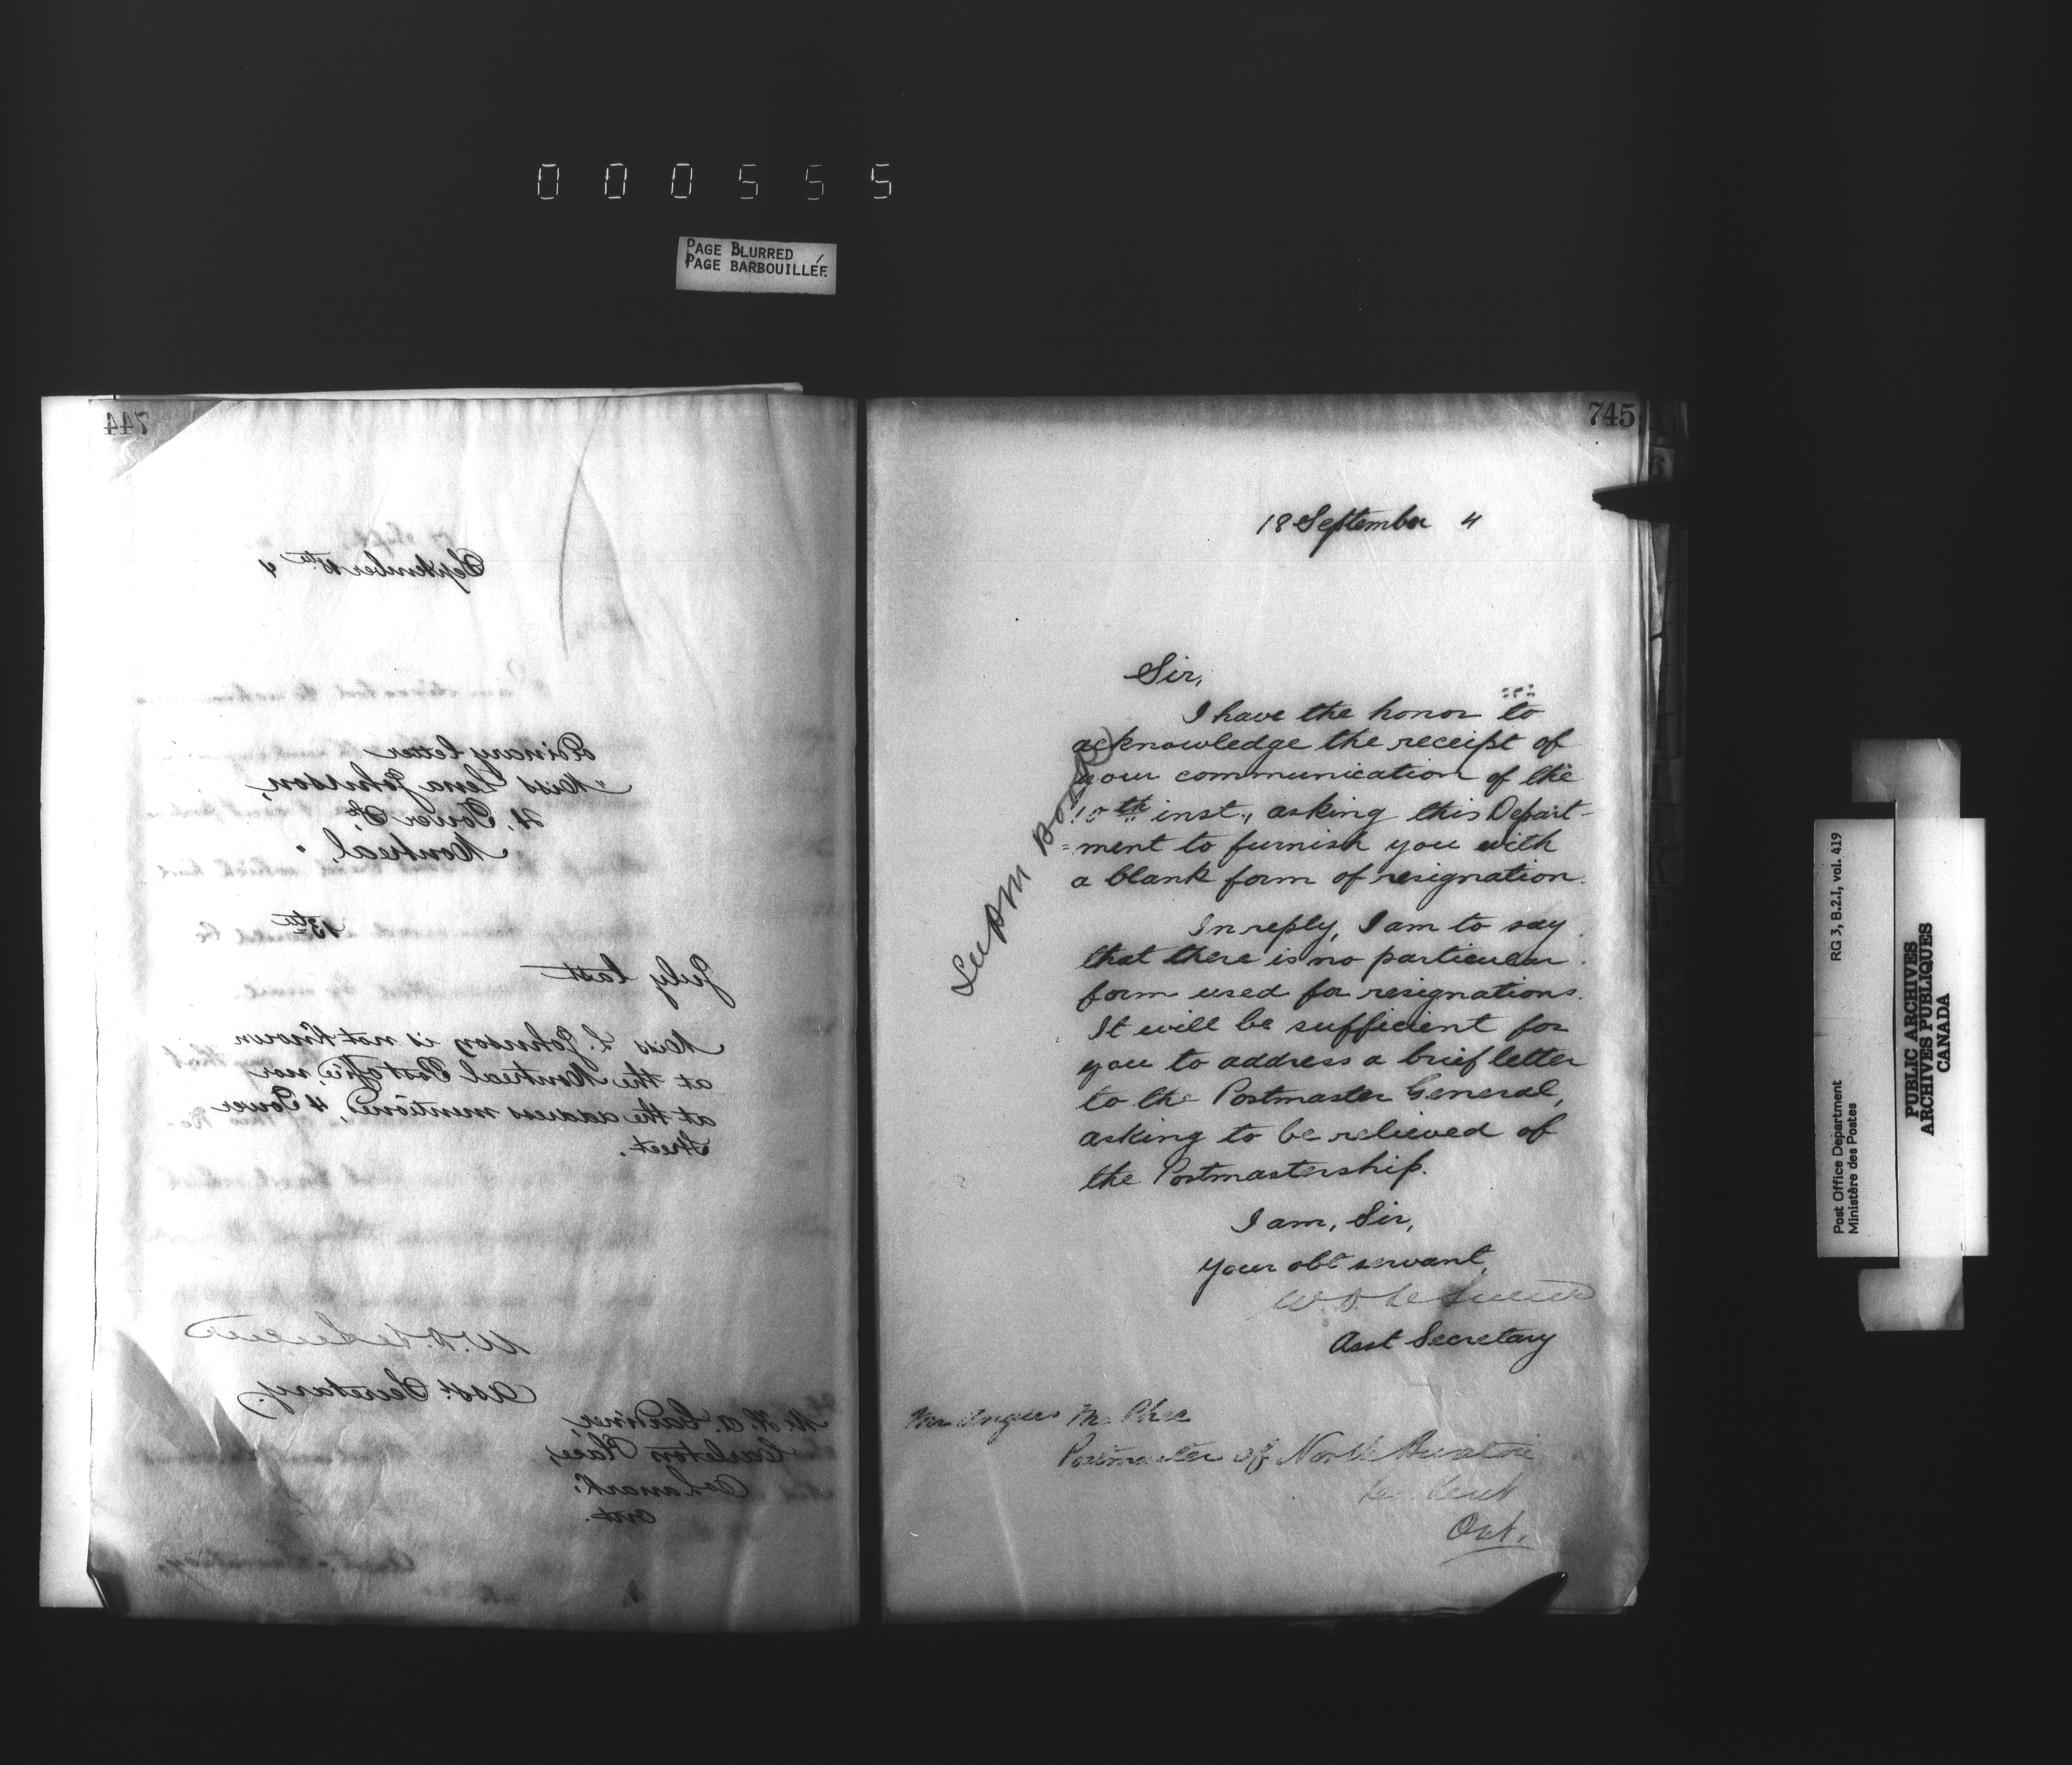 000555
PAGE BLURRED
PAGE BARBOUILLÉE
744
September 18th 4
Ordinary letter
"Miss Lena Johnson,
21, Tower St,
Montreal,"
13th
July last
Miss L. Johnson is not known
at the Montreal Post office, nor
at the address mentioned, 4 Tower
Street.
Asst. Secretary.
Carleton Place,
Co Lanark,
Ont.
745
18 September 4
Sir,
I have the honor to
acknowledge the receipt of
your communication of the
10th inst., asking this Depart-
=ment to furnish you with
a blank form of resignation.
In reply, I am to say
that there is no particular
form used for resignations.
It will be sufficient for
you to address a brief letter
to the Postmaster General,
asking to be relieved of
the Postmastership.
I am, Sir,
Your obt servant,
W. D. LeSueur
Asst Secretary
Mr Angus McPhee
Postmaster of North Buxton
Co. Kent
Ont.
RG 3, B.2.I, vol. 419
Post Office Department
Ministère des Postes
PUBLIC ARCHIVES
ARCHIVES PUBLIQUES
CANADA